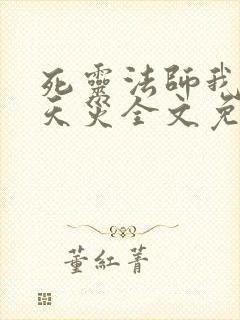 死靈法師我
天災全文免
董紅菁